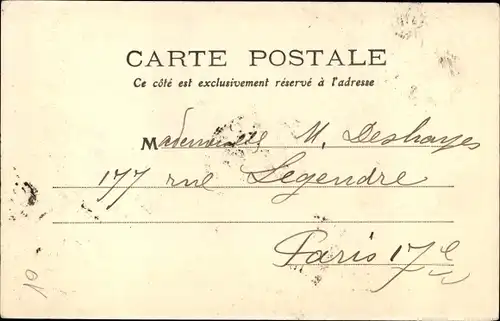 CARTE POSTALE
Ce côté est exclusivement réservé à l'adresse
Mademoiselle M. Deshayes
177 rue Legendre
Paris 17e
10